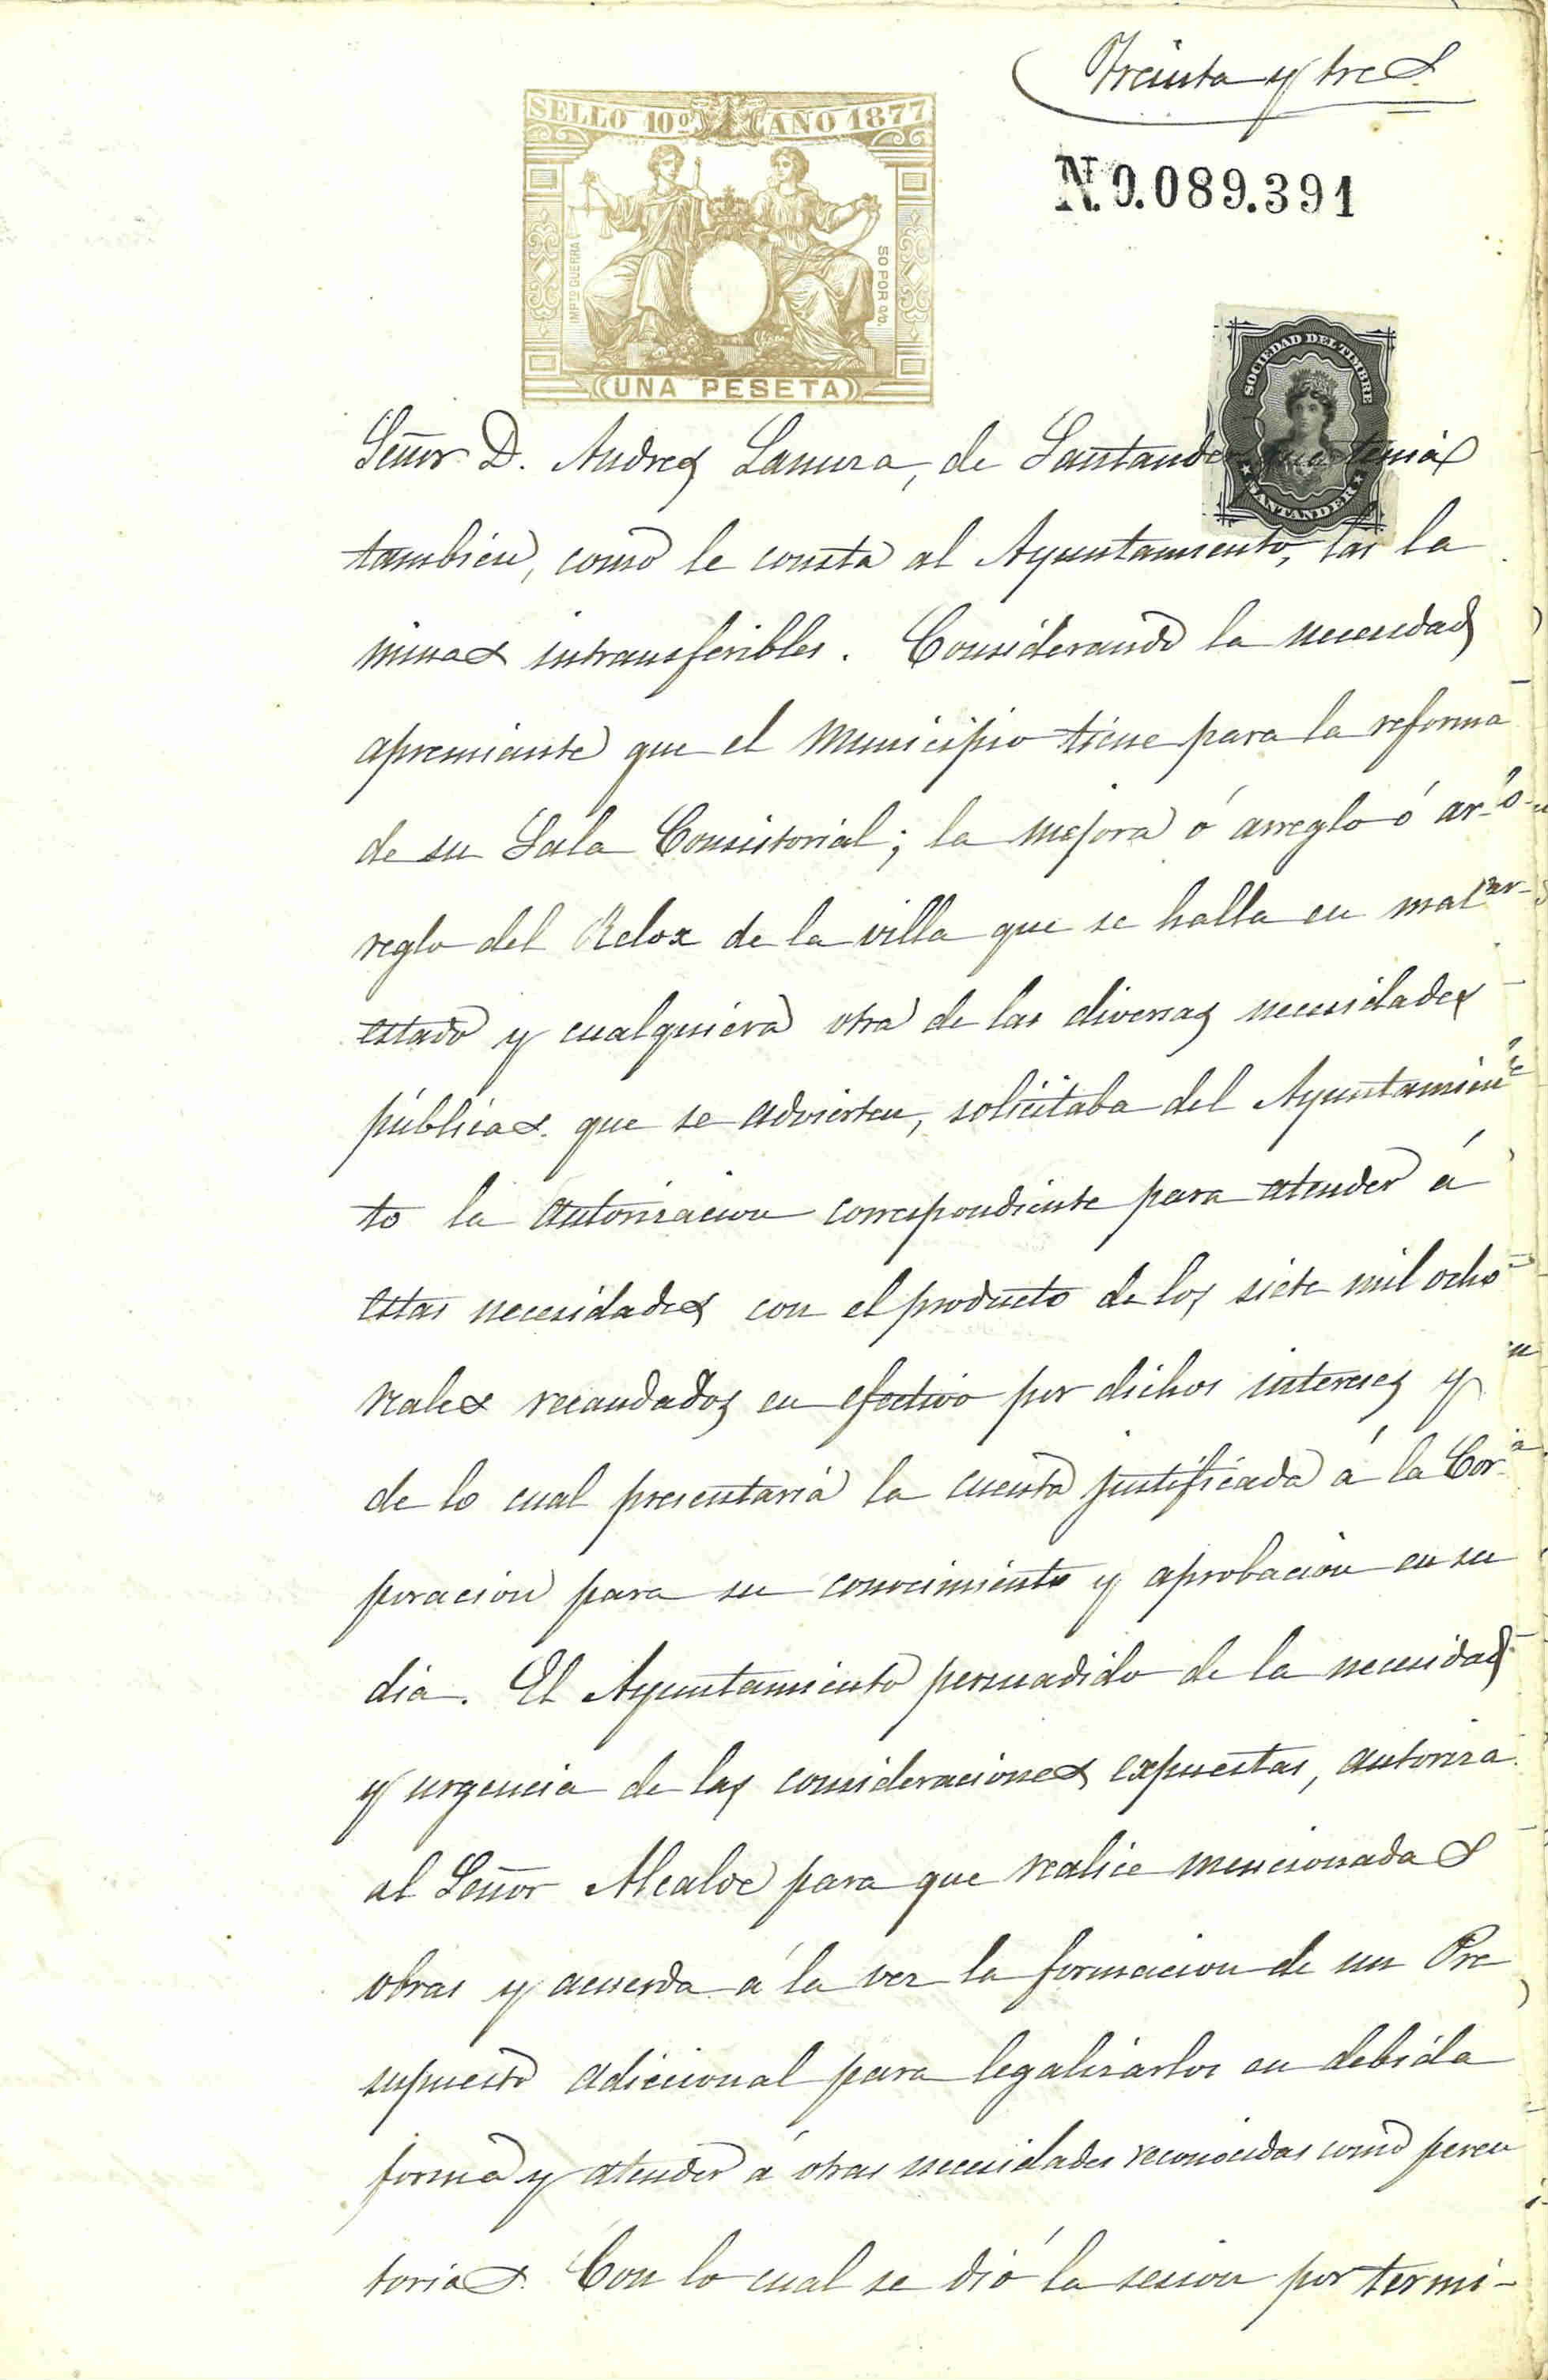 Treinta y tres
SELLO 10º AÑO 1877
N.0.089.391
IMPTO GUERRA
50 POR 0/0.
UNA PESETA
SOCIEDAD DEL TIMBRE
SANTANDER
Señor D. Andres Lamera, de Santander tenia
tambien, como le consta al Ayuntamiento, las la
minas intransferibles. Considerando la necesidad
apremiante que el Municipio tiene para la reforma
de su Sala Consistorial; la mejora ó arreglo ó ar-
reglo del Relox de la villa que se halla en mal
estado y cualquiera otra de las diversas necesidades
públicas que se advierten, solicitaba del Ayuntamien
to la autorizacion correspondiente para atender á
estas necesidades con el producto de los siete mil ocho
reales recaudados en efectivo por dichos intereses y
de lo cual presentaria la cuenta justificada á la Cor-
poracion para su conocimiento y aprobacion en su
dia. El Ayuntamiento persuadido de la necesidad
y urgencia de las consideraciones expuestas, autoriza
al Señor Alcalde para que realice mencionadas
obras y acuerda á la vez la formacion de un Pre
supuesto adiccional para legalizarlos en debida
forma y atender á otras necesidades reconocidas como peren
torias. Con lo cual se dió la sesion por termi-